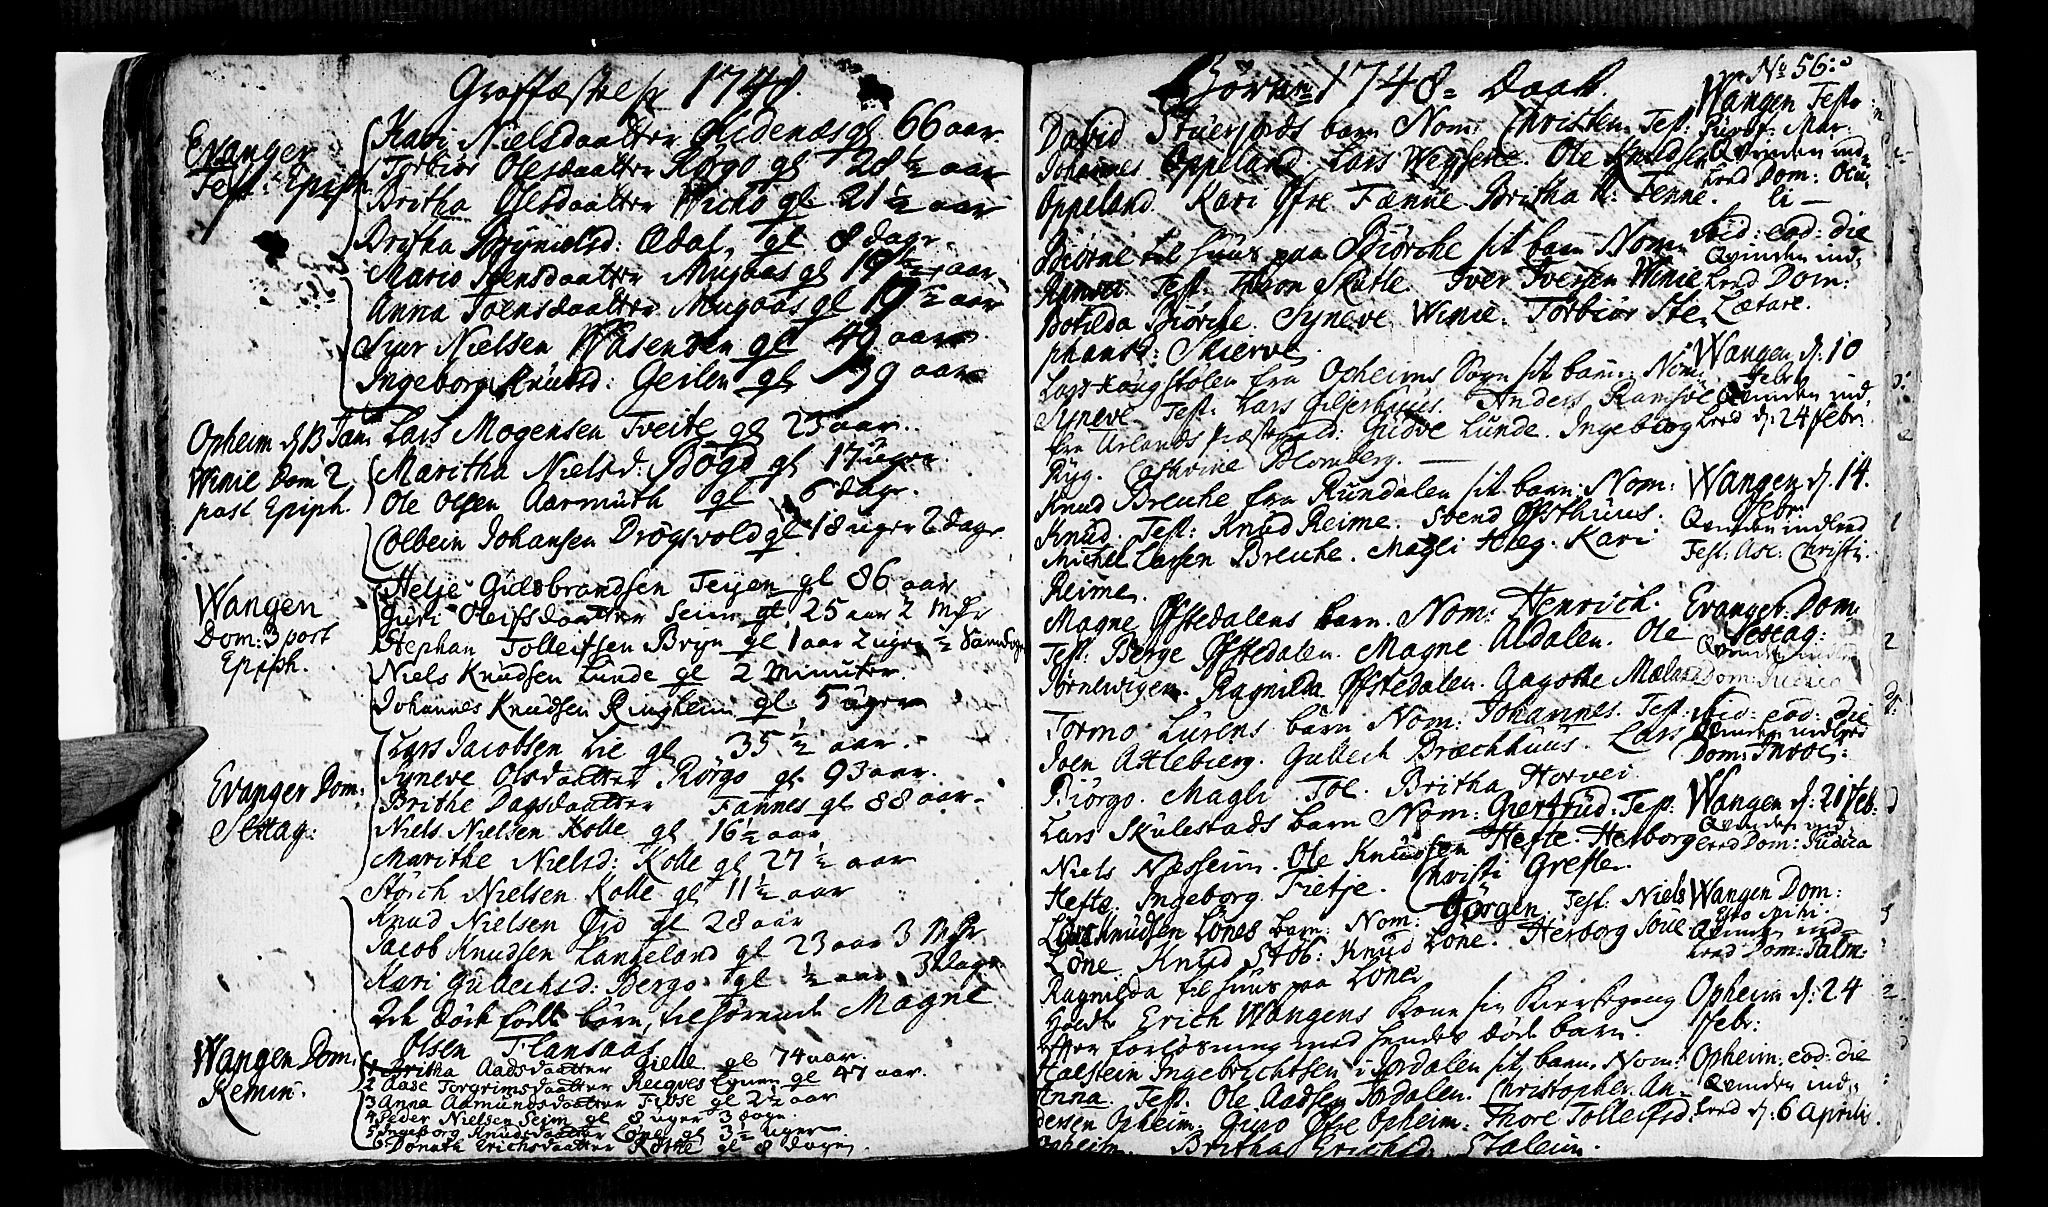 Graffæstelse 1748.
Evanger
Fest: Epiph.
Kari Nielsdaatter Kidenæs gl 66 aar.
Torbiør Olesdaatter Rørgo gl 28½ aar
Britha Olesdaatter Wicho gl 21½ aar
Britha Brynielsd: Ædal, gl 8 dage.
Mario Joensdaatter Mugaas gl 19½ aar
Anna Joensdaatter Mugaas gl 17½ aar
Siur Nielsen Wasenden gl 49 aar
Ingeborg Knudsd: Geilen gl 39 aar
Opheim d. 13 Jan:
Lars Mogensen Tveite gl 23 aar.
Winie Dom 2
post Epiph.
Maritha Nielsd: Bögo gl 17 uger.
Ole Olsen Aarmuth gl 6 dage.
Colbein Johansen Drögsvold gl 18 uger 2 dage
Wangen
Dom: 3 post
Epiph.
Helje Guldbrandsen Teijen gl 86 aar
Guri Oleifsdaatter Seim gl 25 aar 2 Mdr
Stephan Tolleifsen Bryn gl 1 aar 2 uger
Niels Knudsen Lunde gl 2 Minuter.
Johannes Knudsen Ringheim gl. 5 uger
Evanger Dom:
Septuag:
Lars Jacobsen Lie gl 35½ aar.
Syneve Olsdaatter Rörgo gl. 93 aar.
Brithe Dagsdaatter Fannes gl 88 aar.
Niels Nielsen Kolle gl 16½ aar
Marithe Nielsd: Kolle gl 27½ aar
Störch Nielsen Kolle gl 11½ aar
Knud Nielsen Qvid gl 28 aar
Jacob Knudsen Langeland gl 23 aar 3 Mdr
Kari Gullechsd: Bergo gl ½ aar 3 dage
2de död födte börn, tilhörende Magne
Olsen Flansaas
Wangen Dom:
Remin:
1 Britha Aadsdaatter Gielle gl 74 aar.
2 Aase Torgrimsdaatter Recqves gl 47 aar.
3 Anna Aamundsdaatter gl 2½ aar
4 Peder Nielsen Seim gl 8 uger 3 dage.
5 Ingeborg Knudsdaatter Löne gl 3½ uger
6 Donath Erichsdaatter Röthe gl 8 dage
Börnen 1748 = Daab.
No 56:
David Stuerfords barn Nom: Christen. Test:
Johannes Oppeland. Lars Wegsene. Ole Knudsen
Oppeland. Kari Øfre Fænne Britha N: Fenne.
Wangen Festo
Purif: Mar.
Qvinden ind=
leed Dom: Ocu=
li —
Biörne til huus paa Biörche sit barn Nom:
Ranvei. Test: Thron Skutle. Iver Iversen Winie
Botilda Biörche. Syneve Winie. Torbiör Ste=
phansd: Skierve.
ibid: eod: die
Qvinden ind=
leed Dom:
Lætare.
Lars Kongstolen fra Opheims Sogn sit barn: Nom:
Syneve Test: Lars Gilierhuus. Anders Ramsöe
fra Urlands præstegield: Gudve Lunde. Ingeborg
Ryg. Cathrine Blomberg. —
Wangen d. 10
Febr
Qvinden ind=
leed d: 24 Febr.
Knud Breche fra Rundalen sit barn: Nom:
Knud. Test: Knud Reime. Svend Østhuus.
Michel Larsen Breche. Magli Hæg. Kari
Reime.
Wangen d. 14.
Febr:
Qvinden indleed
Fest: Asc: Christi.
Magne Øfstedalens barn. Nom: Henrich.
Test: Berge Øfstedalen. Magne Aldalen. Ole
Jörnevigen. Ragnilda Øfstedalen. Aagothe Mæland
Evanger: Dom.
Sexag:
Qvinden indleed
Dom: Judica
Tormo Lurens barn Nom: Johannes. Test:
Joen Attebierg. Gullech Bræchhuus. Lars
Biörgo. Magli Toe. Britha Horvei.
ibid: eod: die
Qvinden indleed
Dom: Invoc:
Lars Skulestads barn Nom: Giertrud: Test:
Niels Næsseim. Ole Knudsen Hefte. Herborg
Hefte. Ingeborg Fietje. Christi Grefte.
Wangen d: 21 Feb:
Qvinden ind=
leed Dom: Judica
Lars Knudsen Lönes barn: Nom: Görgen. Test: Niels
Löne. Knud Stöb: Knud Löne. Herborg
Ragnilda til huus paa Löne.
Wangen Dom:
Esto mihi.
Qvinden ind=
leed Dom: Palm:
Holdt Erich Wangens Kone sin Kierkegang
efter forlösning med hendes död barn.
Opheim d: 24
Febr:
Halstein Ingebrichtsen i Jordalen sit barn. Nom:
Anna. Test: Ole Aadsen Jordalen. Christopher An=
dersen Opheim. Giro Øfre Opheim. Thore Tollefsd:
Opheim. Britha Erichsd: Staleim.
Opheim: eod: die
Qvinden ind=
leed d: 6 Aprili.